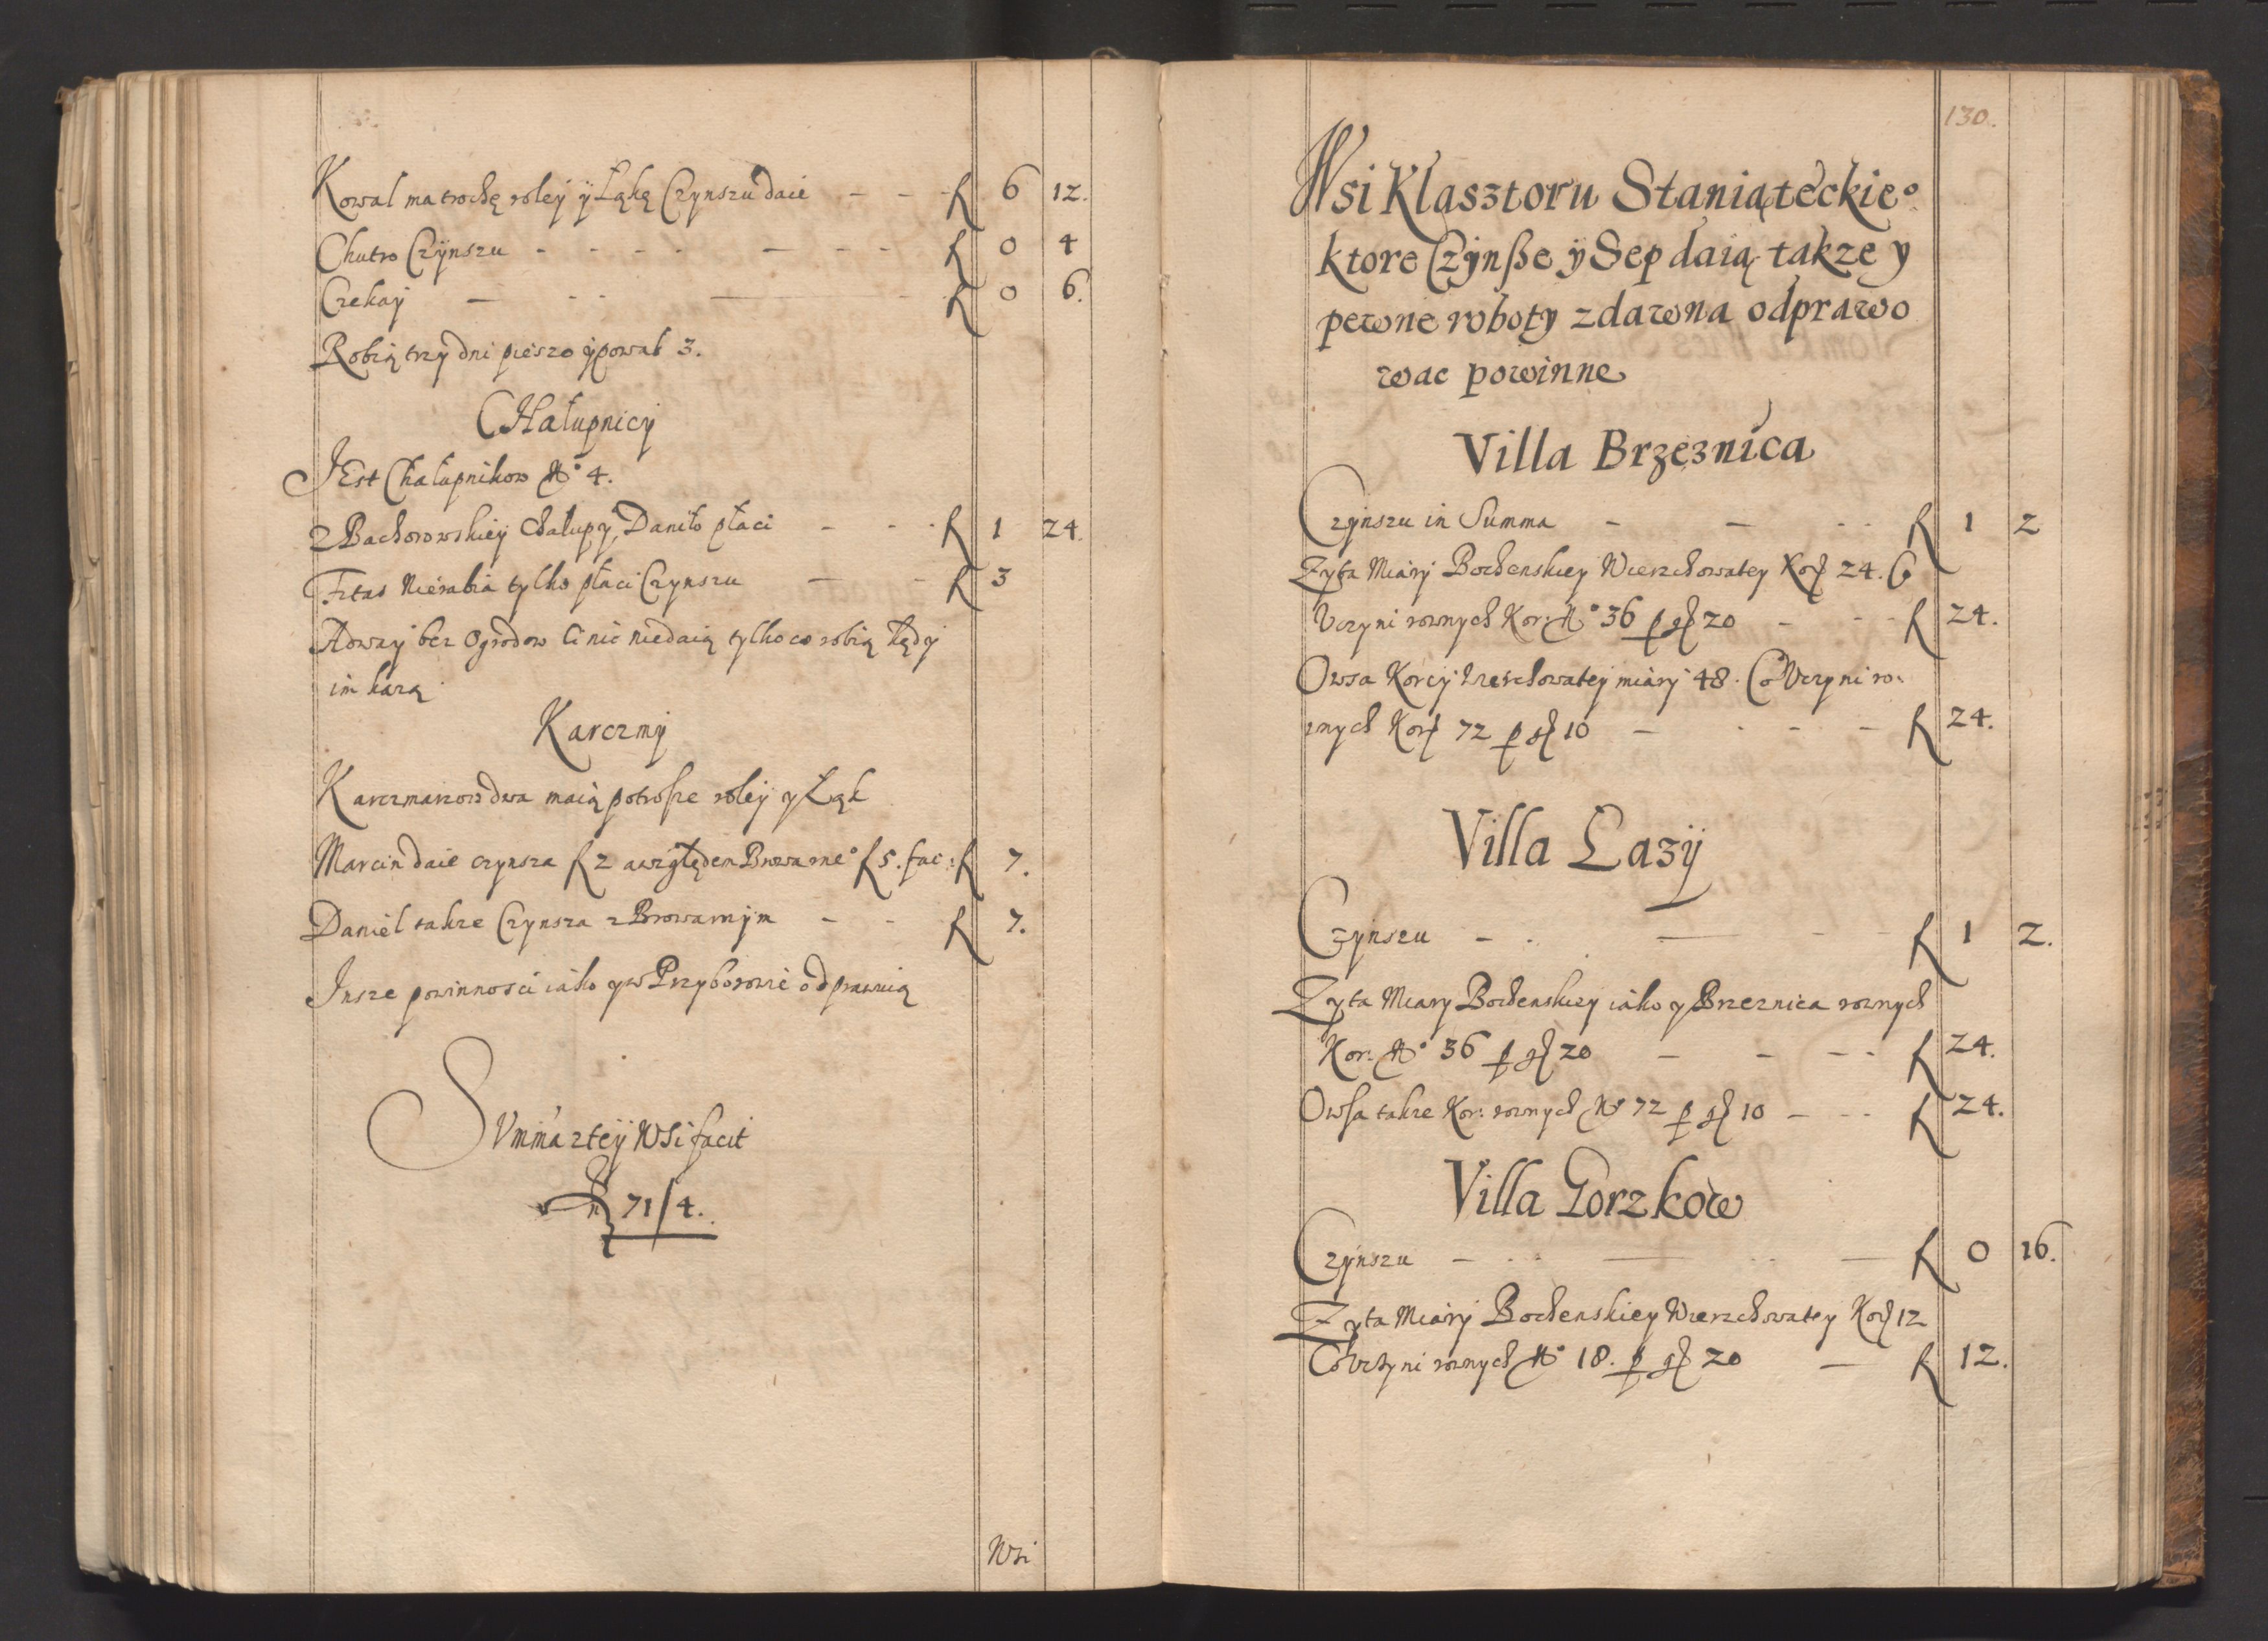 Kowal ma trochę roley ÿ Łąkę Czynszu daie - - - f 6 12.
Chutro Czÿnszu - - - - - - - f 0 4
Czekaÿ - - - - - f 0 6.
Robią trzÿ dni pieszo ÿ powab 3.
CHałupnicÿ
JEst Chałupnikow No 4.
z Bachorowskieÿ Chałupy, Daniło płaci - - - f 1 24.
Fitas Nierabia tylko płaci Czynszu - - f 3
Adwaÿ bez Ogrodow Ci nic niedaią tylko co robią kędÿ
im każą
Karczmÿ
Karczmarzow dwa maią potrosze roleÿ y Łąk
Marcin daie czynsza f 2 a względem Browarneo f 5. fac: f 7.
Daniel takze Czynsza z Browarnÿm - - f 7.
Jnsze powinnosci iako y w Przyborowie odprawuią
SVmma z teÿ Wsi facit
f 71/4.
Wsi
130.
Wsi Klasztoru Staniąteckieo
ktore Czÿnsze ÿ Sep daią takze y
pewne roboty zdawna odprawo
wac powinne
Villa Brzeznica
Czÿnszu in Summa - - - - f 1 2
Zyta Miarÿ Bochenskiey Wierzchowatey Kor 24. Co
Vczyni rownych Kor: No 36 p gr 20 - - - f 24.
Owsa Korcÿ wierzchowateÿ miarÿ 48. Co Vczyni ro-
wnych Kor 72 p gr 10 - - - - f 24.
Villa Łazÿ
Czÿnszu - - - - - f 1 2.
Zyta Miary Bochenskiey iako y Brzeznica rownych
Kor: No 36 p gr 20 - - - - f 24.
Owsa takze Kor: rownych No 72 p gr 10 - - - f 24.
Villa Gorzkow
Czÿnszu - - - - - f 0 16.
Zyta Miarÿ Bochenskiey Wierzchowatey Kor 12
Co Vczyni rownych No 18. p gr 20 - f 12.